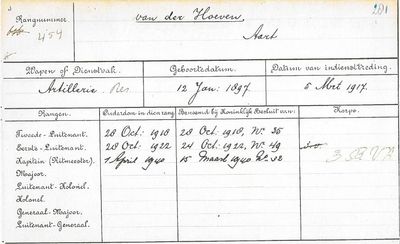 Rangnummer. van der Hoeven, 201
454 Aart
Wapen of Dienstvak. Geboortedatum. Datum van indiensttreding.
Artillerie Res 12 Jan: 1897. 5 Mrt 1917.
Rangen. Ouderdom in dien rang. Benoemd bij Koninklijk Besluit van: Korps.
Tweede-Luitenant. 28 Oct: 1918 28 Oct: 1918, No. 36
Eerste-Luitenant. 28 Oct: 1922 24 Oct: 1922, No. 49
Kapitein (Ritmeester). 1 April 1940 15 Maart 1940 No. 32
Majoor.
Luitenant-Kolonel.
Kolonel.
Generaal-Majoor.
Luitenant-Generaal.